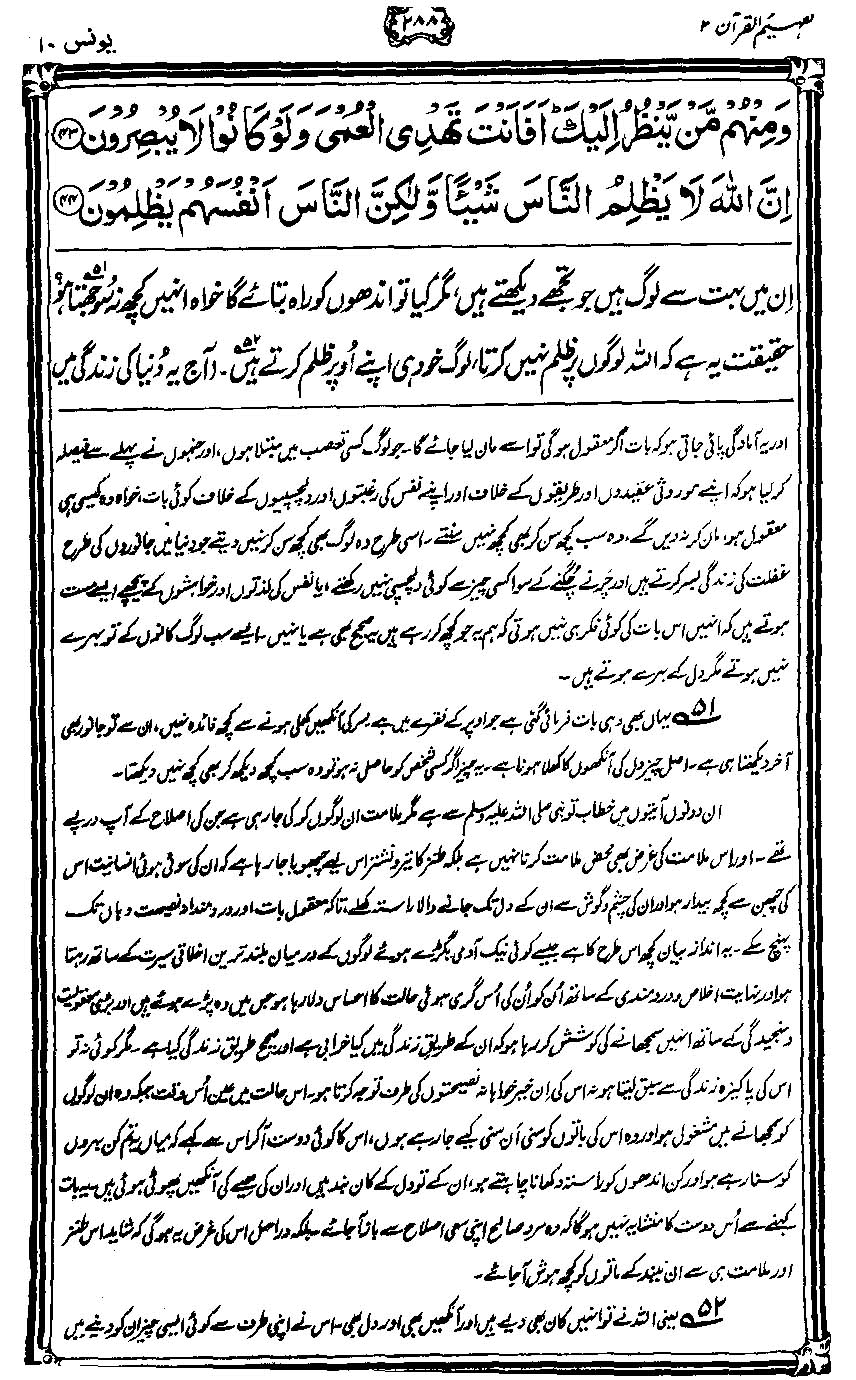 تفہیم القرآن ۲
۲۸۸
یونس ۱۰
وَمِنْهُمْ مَّنْ يَّنْظُرُ اِلَيْكَ ؕ اَفَاَنْتَ تَهْدِى الْعُمْىَ وَلَوْ كَانُوْا لَا يُبْصِرُوْنَ ﴿۴۳﴾
اِنَّ اللّٰهَ لَا يَظْلِمُ النَّاسَ شَيْـًٔا وَّلٰكِنَّ النَّاسَ اَنْفُسَهُمْ يَظْلِمُوْنَ ﴿۴۴﴾
اِن میں بہت سے لوگ ہیں جو تجھے دیکھتے ہیں، مگر کیا تو اندھوں کو راہ بتائے گا خواہ انہیں کچھ نہ سُوجھتا ہو؟ ۵۱
حقیقت یہ ہے کہ اللہ لوگوں پر ظلم نہیں کرتا، لوگ خود ہی اپنے اُوپر ظلم کرتے ہیں۔ ۵۲ (آج یہ دُنیا کی زندگی میں
اور یہ آمادگی پائی جاتی ہو کہ بات اگر معقول ہوگی تو اسے مان لیا جائے گا۔ جو لوگ کسی تعصب میں مبتلا ہوں، اور جنہوں نے پہلے سے فیصلہ
کر لیا ہو کہ اپنے موروثی عقیدوں اور طریقوں کے خلاف اور اپنے نفس کی رغبتوں اور دلچسپیوں کے خلاف کوئی بات، خواہ وہ کیسی ہی
معقول ہو، مان کر نہ دیں گے، وہ سب کچھ سن کر بھی کچھ نہیں سنتے۔ اسی طرح وہ لوگ بھی کچھ سن کر نہیں دیتے جو دنیا میں جانوروں کی طرح
غفلت کی زندگی بسر کرتے ہیں اور چرنے چُگنے کے سوا کسی چیز سے کوئی دلچسپی نہیں رکھتے، یا نفس کی لذتوں اور خواہشوں کے پیچھے ایسے مست
ہوتے ہیں کہ انہیں اس بات کی کوئی فکر ہی نہیں ہوتی کہ ہم یہ جو کچھ کر رہے ہیں یہ صحیح بھی ہے یا نہیں۔ ایسے سب لوگ کانوں کے تو بہرے
نہیں ہوتے مگر دل کے بہرے ہوتے ہیں۔
۵۱ یہاں بھی وہی بات فرمائی گئی ہے جو اوپر کے فقرے میں ہے۔ سر کی آنکھیں کھلی ہونے سے کچھ فائدہ نہیں، ان سے تو جانور بھی
آخر دیکھتا ہی ہے۔ اصل چیز دل کی آنکھوں کا کھلا ہونا ہے۔ یہ چیز اگر کسی شخص کو حاصل نہ ہو تو وہ سب کچھ دیکھ کر بھی کچھ نہیں دیکھتا۔
ان دونوں آیتوں میں خطاب تو نبی صلی اللہ علیہ وسلم سے ہے مگر ملامت ان لوگوں کو کی جا رہی ہے جن کی اصلاح کے آپ درپے
تھے۔ اور اس ملامت کی غرض بھی محض ملامت کرنا نہیں ہے بلکہ طنز کا تیر و نشتر اس لیے چبھویا جا رہا ہے کہ ان کی سوئی ہوئی انسانیت اس
کی چبھن سے کچھ بیدار ہو اور ان کی چشم و گوش سے ان کے دل تک جانے والا راستہ کھلے، تاکہ معقول بات اور دردمندانہ نصیحت وہاں تک
پہنچ سکے۔ یہ انداز بیان کچھ اس طرح کا ہے جیسے کوئی نیک آدمی بگڑے ہوئے لوگوں کے درمیان بلند ترین اخلاقی سیرت کے ساتھ رہتا
ہو اور نہایت اخلاص و دردمندی کے ساتھ اُن کو اُن کی اُس گری ہوئی حالت کا احساس دلا رہا ہو جس میں وہ پڑے ہوئے ہیں اور بڑی معقولیت
و سنجیدگی کے ساتھ انہیں سمجھانے کی کوشش کر رہا ہو کہ ان کے طریق زندگی میں کیا خرابی ہے اور صحیح طریق زندگی کیا ہے۔ مگر کوئی نہ تو
اس کی پاکیزہ زندگی سے سبق لیتا ہو نہ اس کی ان خیر خواہانہ نصیحتوں کی طرف توجہ کرتا ہو۔ اس حالت میں عین اُس وقت جبکہ وہ ان لوگوں
کو سمجھانے میں مشغول ہو اور وہ اس کی باتوں کو سنی اَن سنی کیے جا رہے ہوں، اس کا کوئی دوست آکر اس سے کہے کہ میاں یہ تم کن بہروں
کو سنا رہے ہو اور کن اندھوں کو راستہ دکھانا چاہتے ہو، ان کے تو دل کے کان بند ہیں اور ان کی ہیے کی آنکھیں پھوٹی ہوئی ہیں۔ یہ بات
کہنے سے اُس دوست کا منشا یہ نہیں ہوگا کہ وہ مرد صالح اپنی سعی اصلاح سے باز آ جائے۔ بلکہ دراصل اس کی غرض یہ ہوگی کہ شاید اس طنز
اور ملامت ہی سے ان نیند کے ماتوں کو کچھ ہوش آ جائے۔
۵۲ یعنی اللہ نے تو انہیں کان بھی دیے ہیں اور آنکھیں بھی اور دل بھی۔ اس نے اپنی طرف سے کوئی ایسی چیز ان کو دینے میں